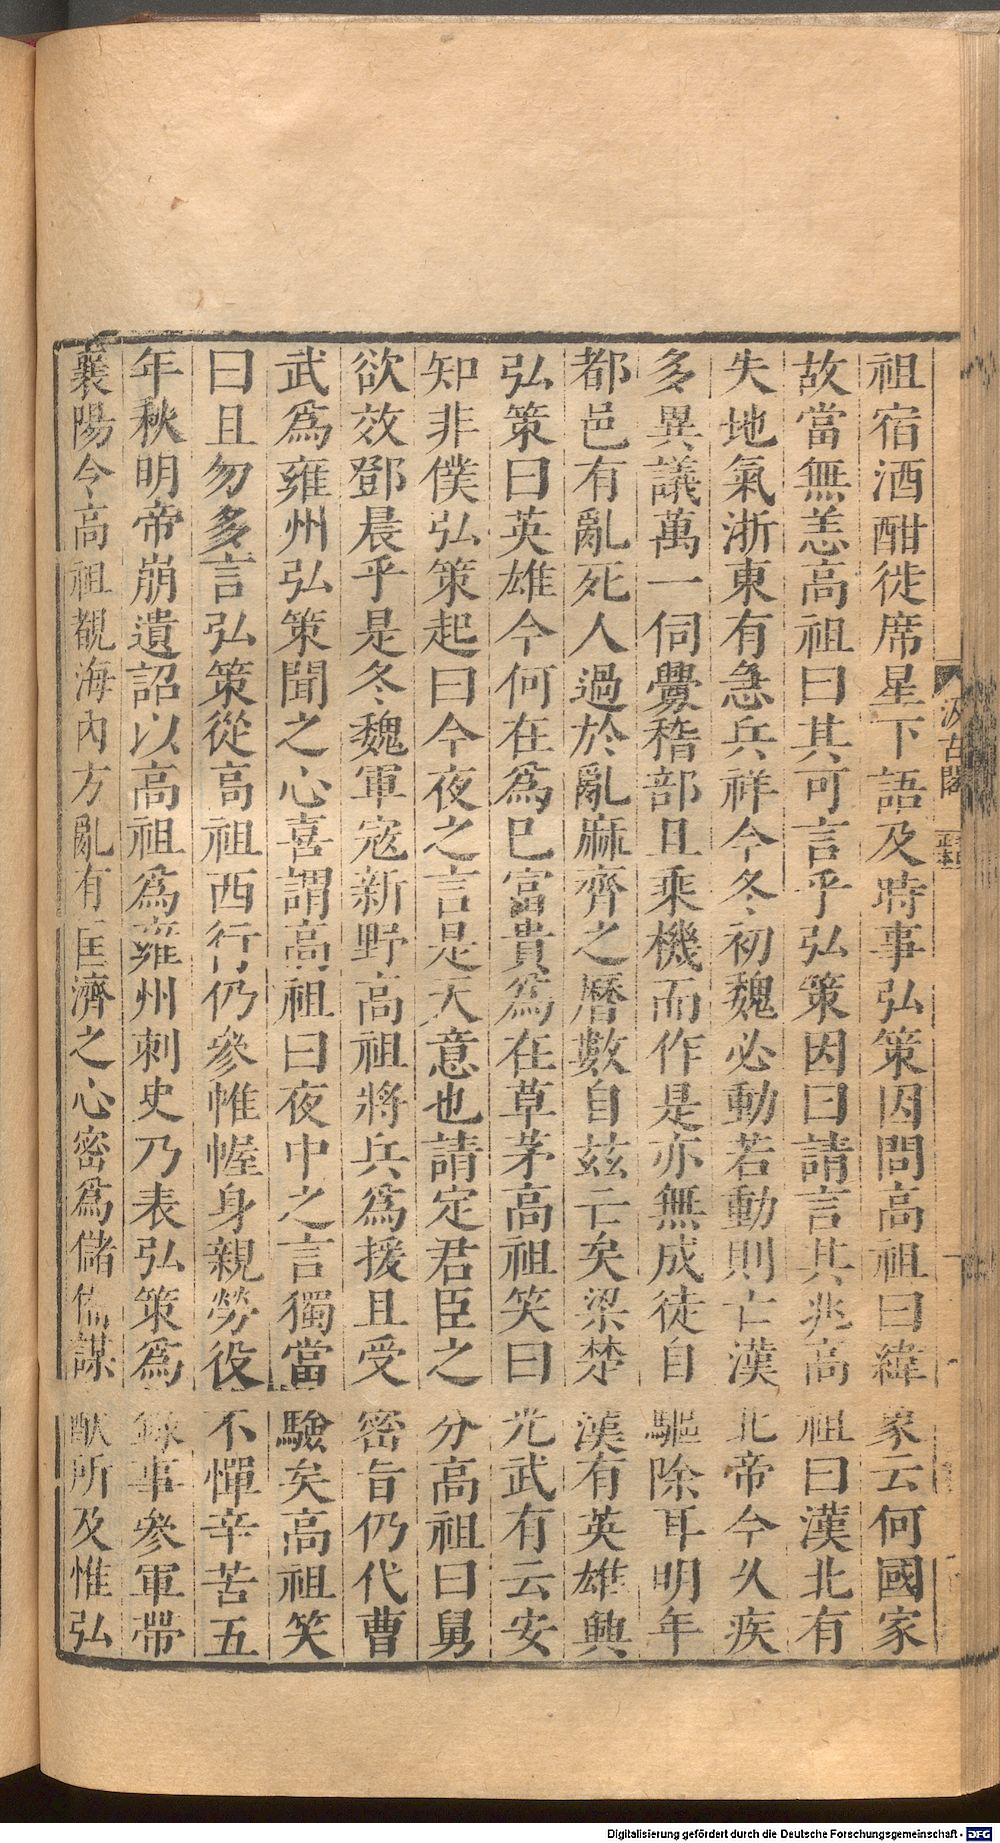 祖宿酒酣徙席星下語及時事弘策因問高祖曰緯象云何國家
故當無恙高祖曰其可言乎弘策因曰請言其兆高祖曰漢北有
失地氣浙東有急兵祥今冬初魏必動若動則亡漢北帝今久疾
多異議萬一伺釁稽部且乘機而作是亦無成徒自驅除耳明年
都邑有亂死人過於亂麻齊之曆數自茲亡矣梁楚漢有英雄興
弘策曰英雄今何在爲已富貴爲在草茅高祖笑曰光武有云安
知非僕弘策起曰今夜之言是天意也請定君臣之分高祖曰舅
欲效鄧晨乎是冬魏軍寇新野高祖將兵爲援且受密旨仍代曹
武爲雍州弘策聞之心喜謂高祖曰夜中之言獨當驗矣高祖笑
曰且勿多言弘策從高祖西行仍參帷幄身親勞役不憚辛苦五
年秋明帝崩遺詔以高祖爲雍州刺史乃表弘策爲錄事參軍帶
襄陽令高祖覩海內方亂有匡濟之心密爲儲備謀猷所及惟弘
汲古閣
Digitalisierung gefördert durch die Deutsche Forschungsgemeinschaft - DFG